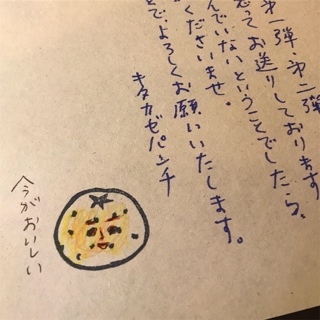 第一弾・第二弾
思ってお送りしております
んでいないということでしたら、
くださいませ。
で、よろしくお願いいたします。
キタカゼパンチ
今がおいしい